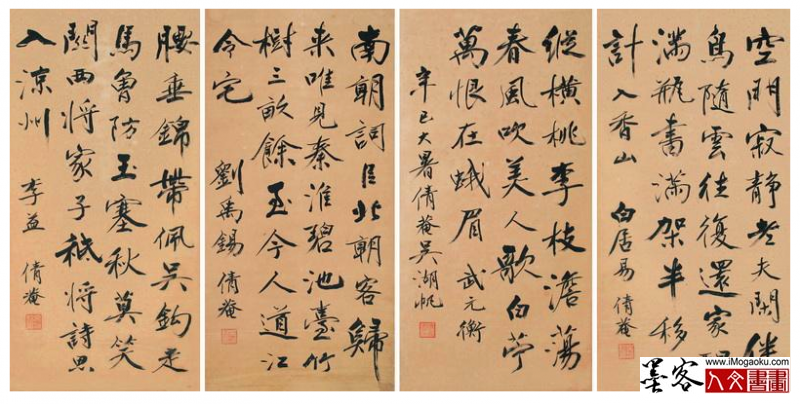 空門寂靜老夫閒伴
鳥隨雲往復還家
滿瓶書滿架半移
計入香山 白居易 倩菴
縱橫桃李枝澹蕩
春風吹美人歌白苧
萬恨在蛾眉 武元衡
辛巳大暑倩菴吳湖帆
南朝詞臣北朝客歸
来唯見秦淮碧池臺竹
樹三畝餘至今人道江
令宅 劉禹錫 倩菴
腰垂錦帶佩吳鈎走
馬曾防玉塞秋莫笑
關西将家子祇将詩思
入涼州 李益 倩菴
墨客
www.iMogaoku.com
人文書畫